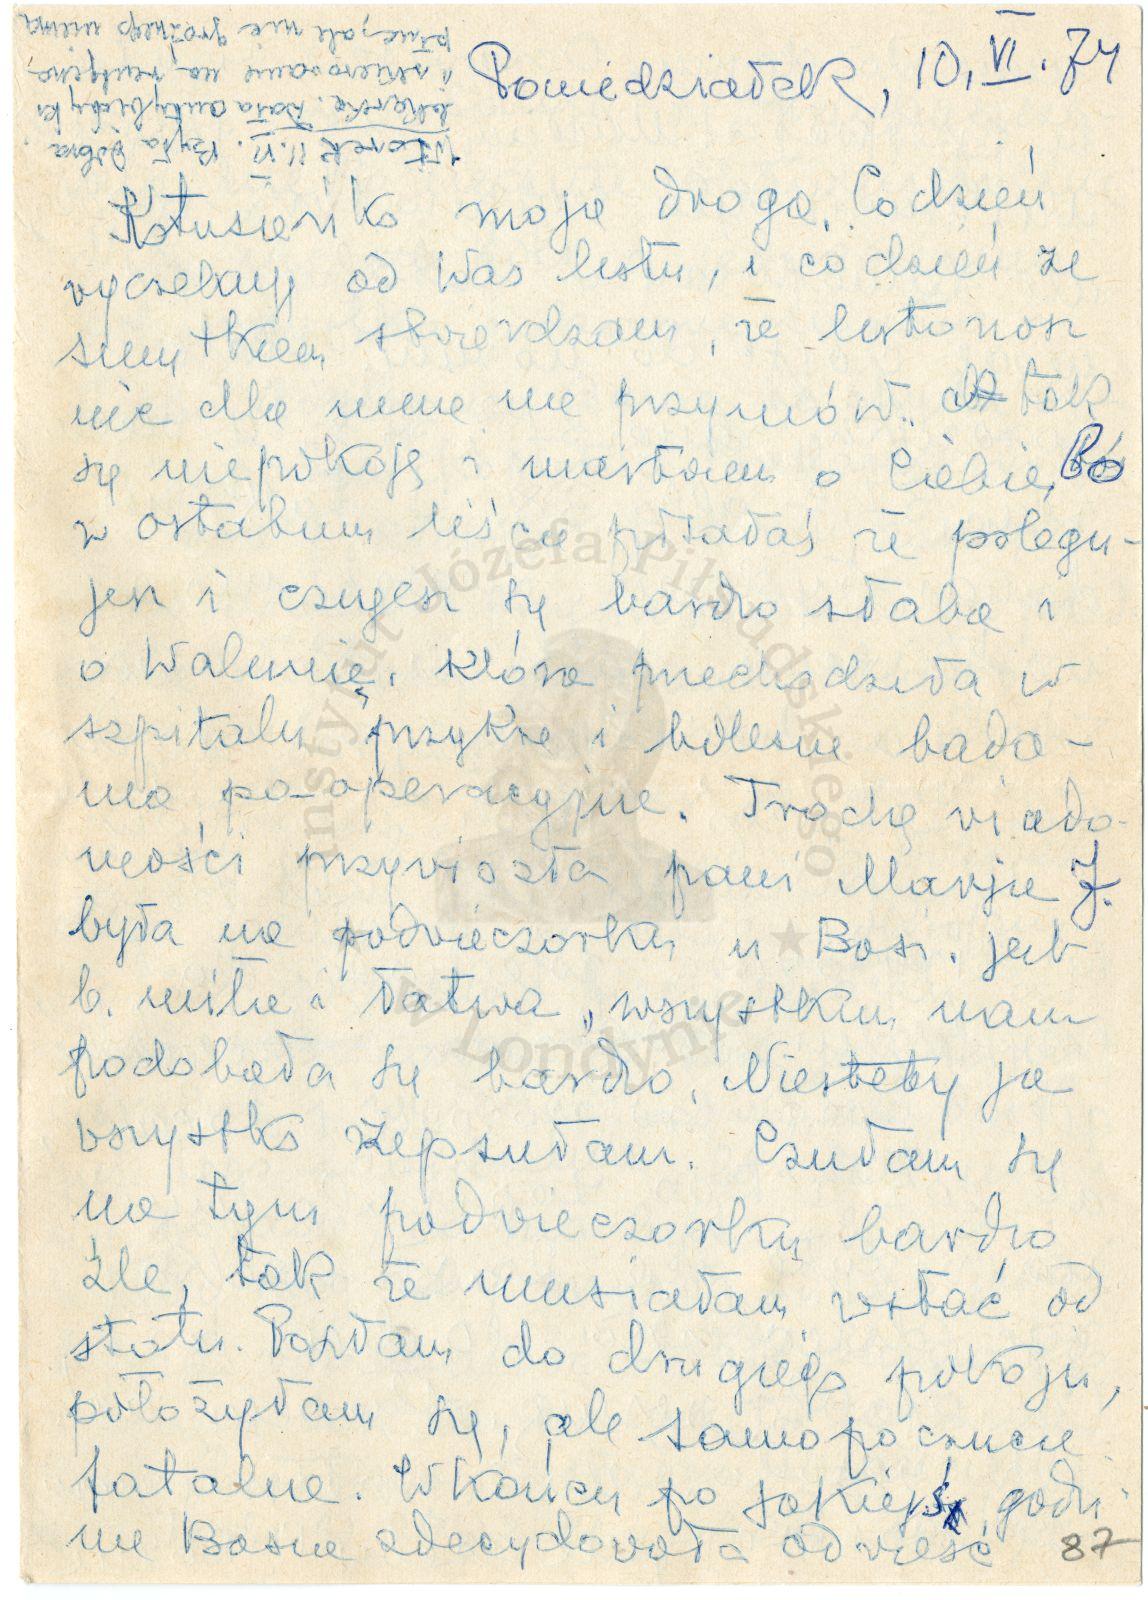 Poniedziałek, 10.VI.74
Wtorek 11.VI. Była dobra
lekarka. Dała antybiotyki
i skierowanie na rentgena,
płuc, ale nic groźnego niema
Kotusieńko moja droga. Codzień
wyczekuję od Was listu, i codzień ze
smutkiem stwierdzam, że listonosz
nic dla mnie nie przyniósł. tak
się niepokoję i martwię o Ciebie, Bo
w ostatnim liście pisałaś że polegu-
jesz i czujesz się bardzo słaba i
o Walunię, która przechodziła w
szpitalu przykre i bolesne bada-
nia po-operacyjne. Trochę wiado-
mości przywiozła pani Marja J.
była na podwieczorku u Basi. jest
b. miła i łatwa, wszystkim nam
podobała się bardzo. Niestety ja
wszystko zepsułam. Czułam się
na tym podwieczorku bardzo
źle, tak że musiałam wstać od
stołu. Poszłam do drugiego pokoju,
położyłam się, ale samopoczucie
fatalne. Wkońcu po jakiejś godzi-
nie Basia zdecydowała odwieść
87
Instytut Józefa Piłsudskiego
w Londynie